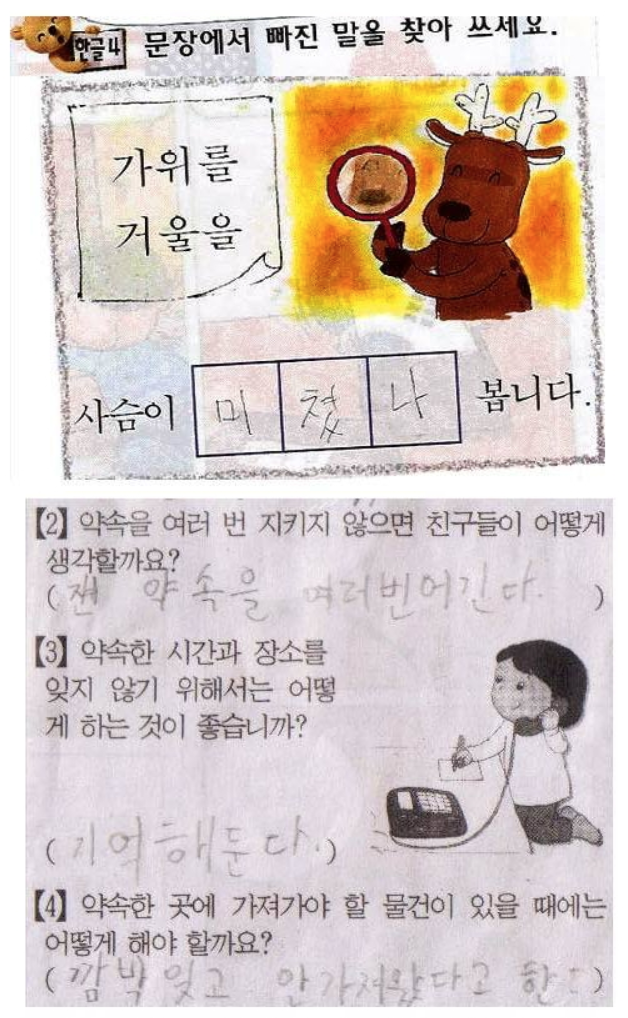 한글4 문장에서 빠진 말을 찾아 쓰세요.
가위를
거울을
사슴이 미쳤나 봅니다.
【2】 약속을 여러 번 지키지 않으면 친구들이 어떻게
생각할까요?
(쟨 약속을 여러번어긴다. )
【3】 약속한 시간과 장소를
잊지 않기 위해서는 어떻
게 하는 것이 좋습니까?
(기억해둔다.)
【4】 약속한 곳에 가져가야 할 물건이 있을 때에는
어떻게 해야 할까요?
(깜박잊고 안가저왔다고 한다)